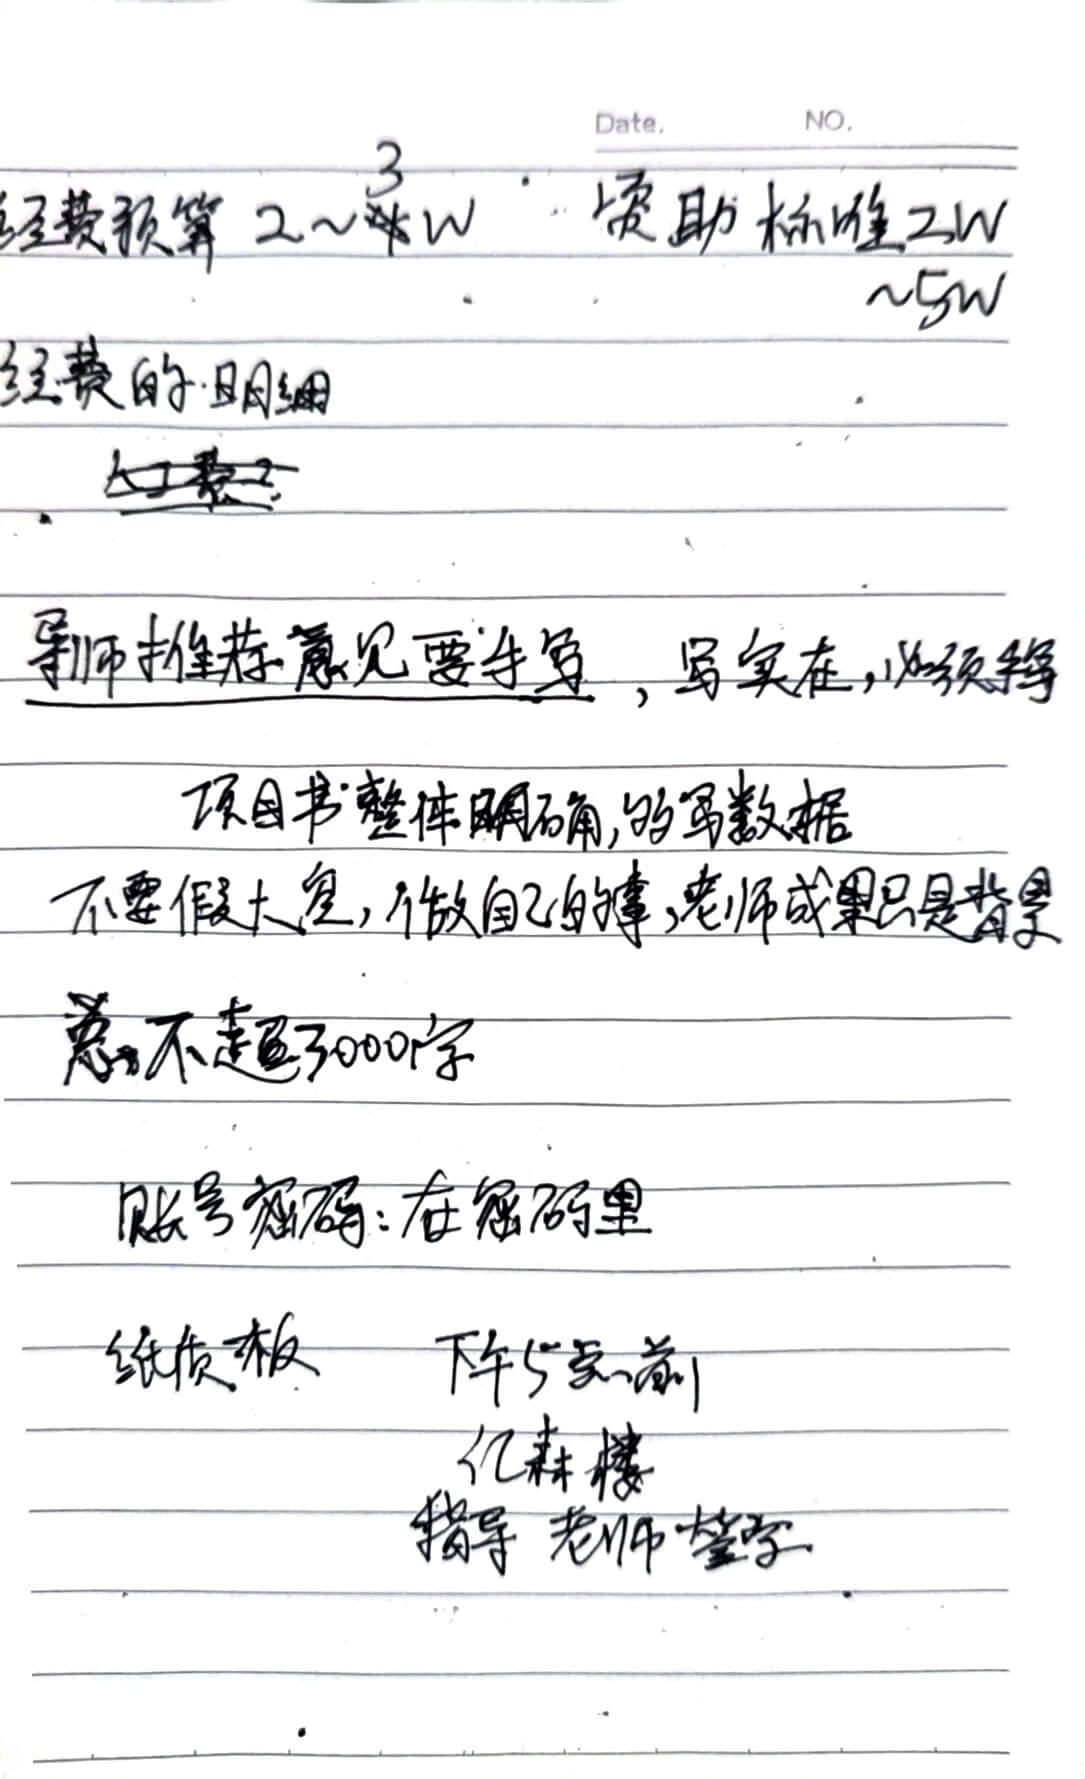 Date. NO.
经费预算 2~3W 资助标准2W
~5W
经费的明细
导师推荐意见要手写，写实在，必须手写
项目书整体明确，多写数据
不要假大空，做自己的事，老师成果只是背景
总不超3000字
账号密码：在密码里
纸质板 下午5点前
亿森楼
指导老师签字